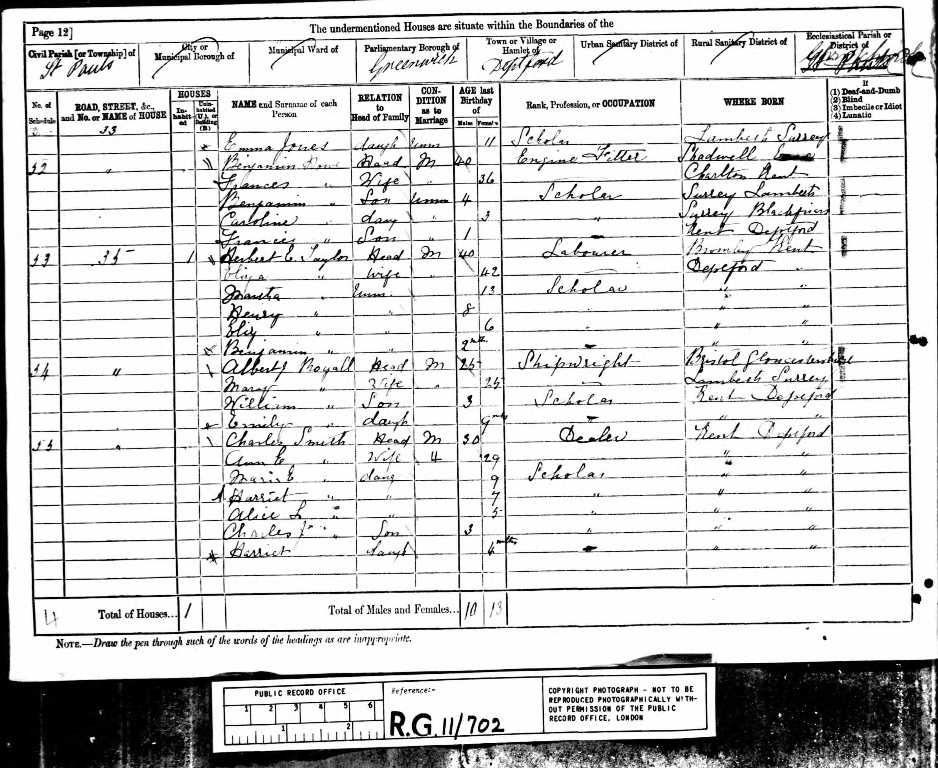 Page 12]
The undermentioned Houses are situate within the Boundaries of the
Civil Parish [or Township] of
St Pauls
City or Municipal Borough of
Municipal Ward of
Parliamentary Borough of
Greenwich
Town or Village or Hamlet of
Deptford
Urban Sanitary District of
Rural Sanitary District of
Ecclesiastical Parish or District of
No. of Schedule
ROAD, STREET, &c., and No. or NAME of HOUSE
HOUSES
In-habit-ed
Unin-habited (U.), or Building (B.)
NAME and Surname of each Person
RELATION to Head of Family
CON-DITION as to Marriage
AGE last Birthday of
Males
Females
Rank, Profession, or OCCUPATION
WHERE BORN
If
(1) Deaf-and-Dumb
(2) Blind
(3) Imbecile or Idiot
(4) Lunatic
33
Emma Jones daugh Unm 11 Scholar Lambeth Surrey
32 " Benjamin Head M 40 Engine Fitter Shadwell
Frances " Wife " 36 Charlton Kent
Benjamin " Son Unm 4 Scholar Surrey Lambeth
Caroline " daug " 3 " Surrey Blackfriars
Francis " Son " 1 Kent Deptford
33 35 1 Herbert C. Taylor Head M 40 Labourer Bromley Kent
Eliza " Wife " 42 Deptford "
Martha " Unm 13 Scholar " "
Henry " " 8 " "
Eliz " " 6 " " "
Benjamin " " 2 mth " "
34 " Albert J Royall Head M 25 Shipwright Bristol Gloucestershire
Mary " Wife " 25 Lambeth Surrey
William " Son 3 Scholar Kent Deptford
Emily " daugh 9 mths " "
35 " Charles Smith Head M 30 Dealer Kent Deptford
Ann E. " Wife 4 29 " "
Marie E " daug 9 Scholar " "
Harriet " " 7 " " "
Alice L " " 5 " " "
Charles J " Son 3 " " "
Harriet daugh 4 mths " "
4 Total of Houses... 1 Total of Males and Females... 10 13
NOTE.—Draw the pen through such of the words of the headings as are inappropriate.
PUBLIC RECORD OFFICE
1 2 3 4 5 6
1 2
Reference:-
R.G. 11/702
COPYRIGHT PHOTOGRAPH - NOT TO BE
REPRODUCED PHOTOGRAPHICALLY WITH-
OUT PERMISSION OF THE PUBLIC
RECORD OFFICE, LONDON